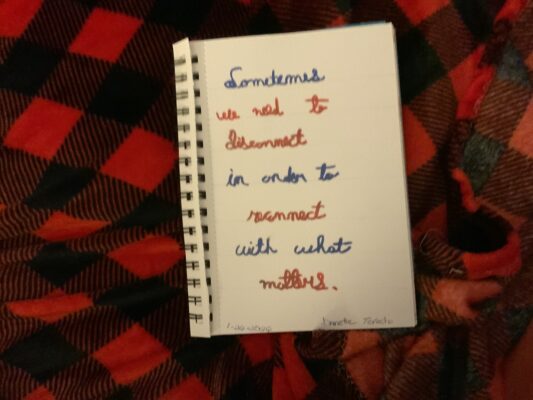 Sometimes
we need to
disconnect
in order to
reconnect
with what
matters.